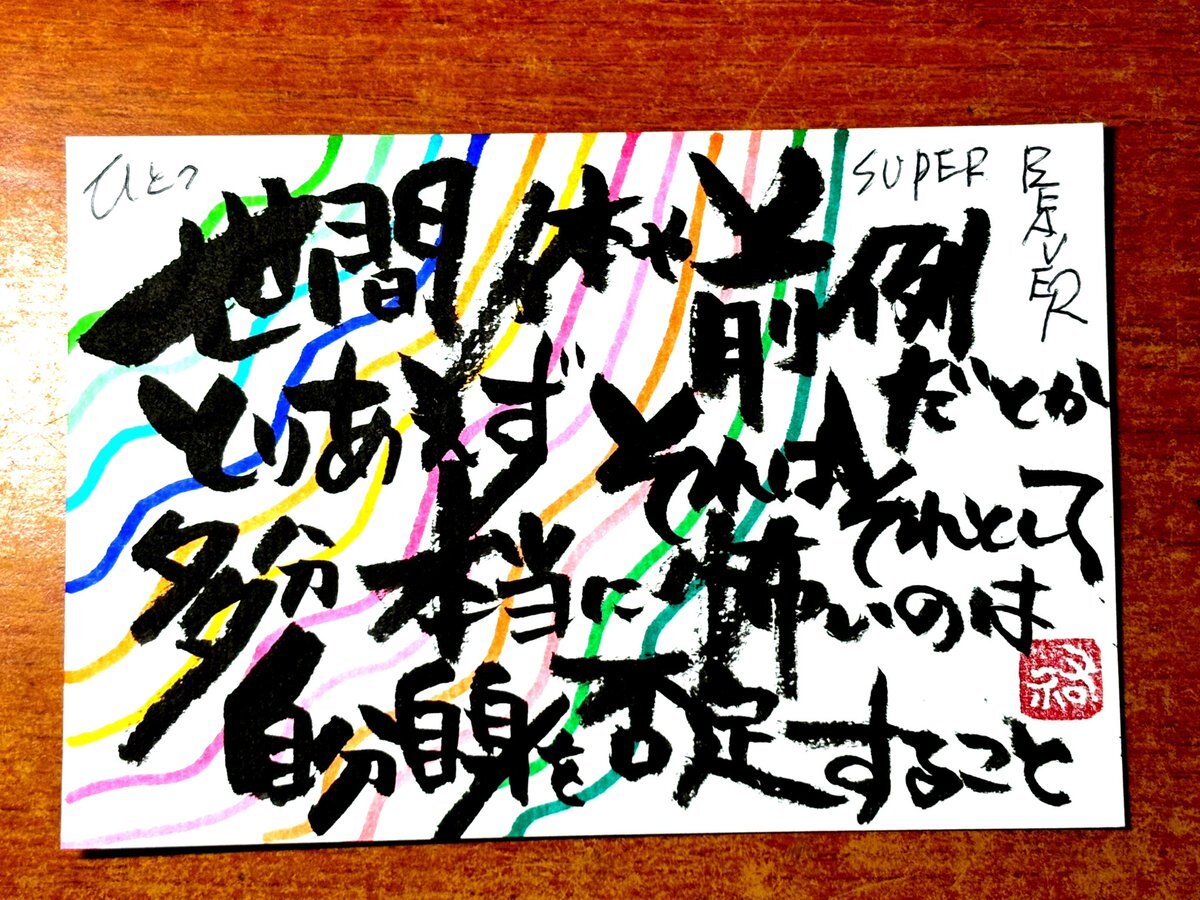 ひとつ
SUPER BEAVER
世間体や前例だとか
とりあえずそれはそれとして
多分本当に怖いのは
自分自身を否定すること